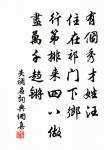 有個秀才姓汪
住在祁門下鄉
行第排來四八做
盡萬千趙鏘
失调名詞典網集